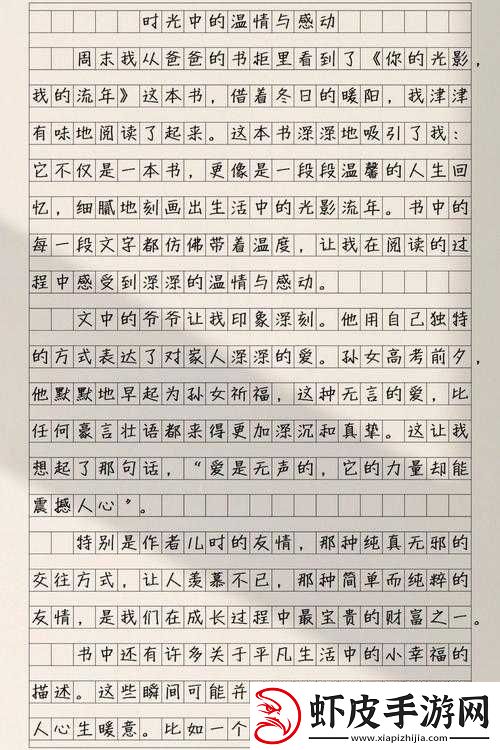 时光中的温情与感动
周末我从爸爸的书柜里看到了《你的光影,
我的流年》这本书，借着冬日的暖阳，我津津
有味地阅读了起来。这本书深深地吸引了我：
它不仅是一本书，更像是一段段温馨的人生回
忆，细腻地刻画出生活中的光影流年。书中的
每一段文字都仿佛带着温度，让我在阅读的过
程中感受到深深的温情与感动。
文中的爷爷让我印象深刻。他用自己独特
的方式表达了对家人深深的爱。孙女高考前夕，
他默默地早起为孙女祈福，这种无言的爱，比
任何豪言壮语都来得更加深沉和真挚。这让我
想起了那句话，“爱是无声的，它的力量却能
震撼人心”。
特别是作者儿时的友情，那种纯真无邪的
交往方式，让人羡慕不已，那种简单而纯粹的
友情，是我们在成长过程中最宝贵的财富之一。
书中还有许多关于平凡生活中的小幸福的
描述。这些瞬间可能并
人心生暖意。比如一个
虾皮手游网
www.xiapizhijia.com